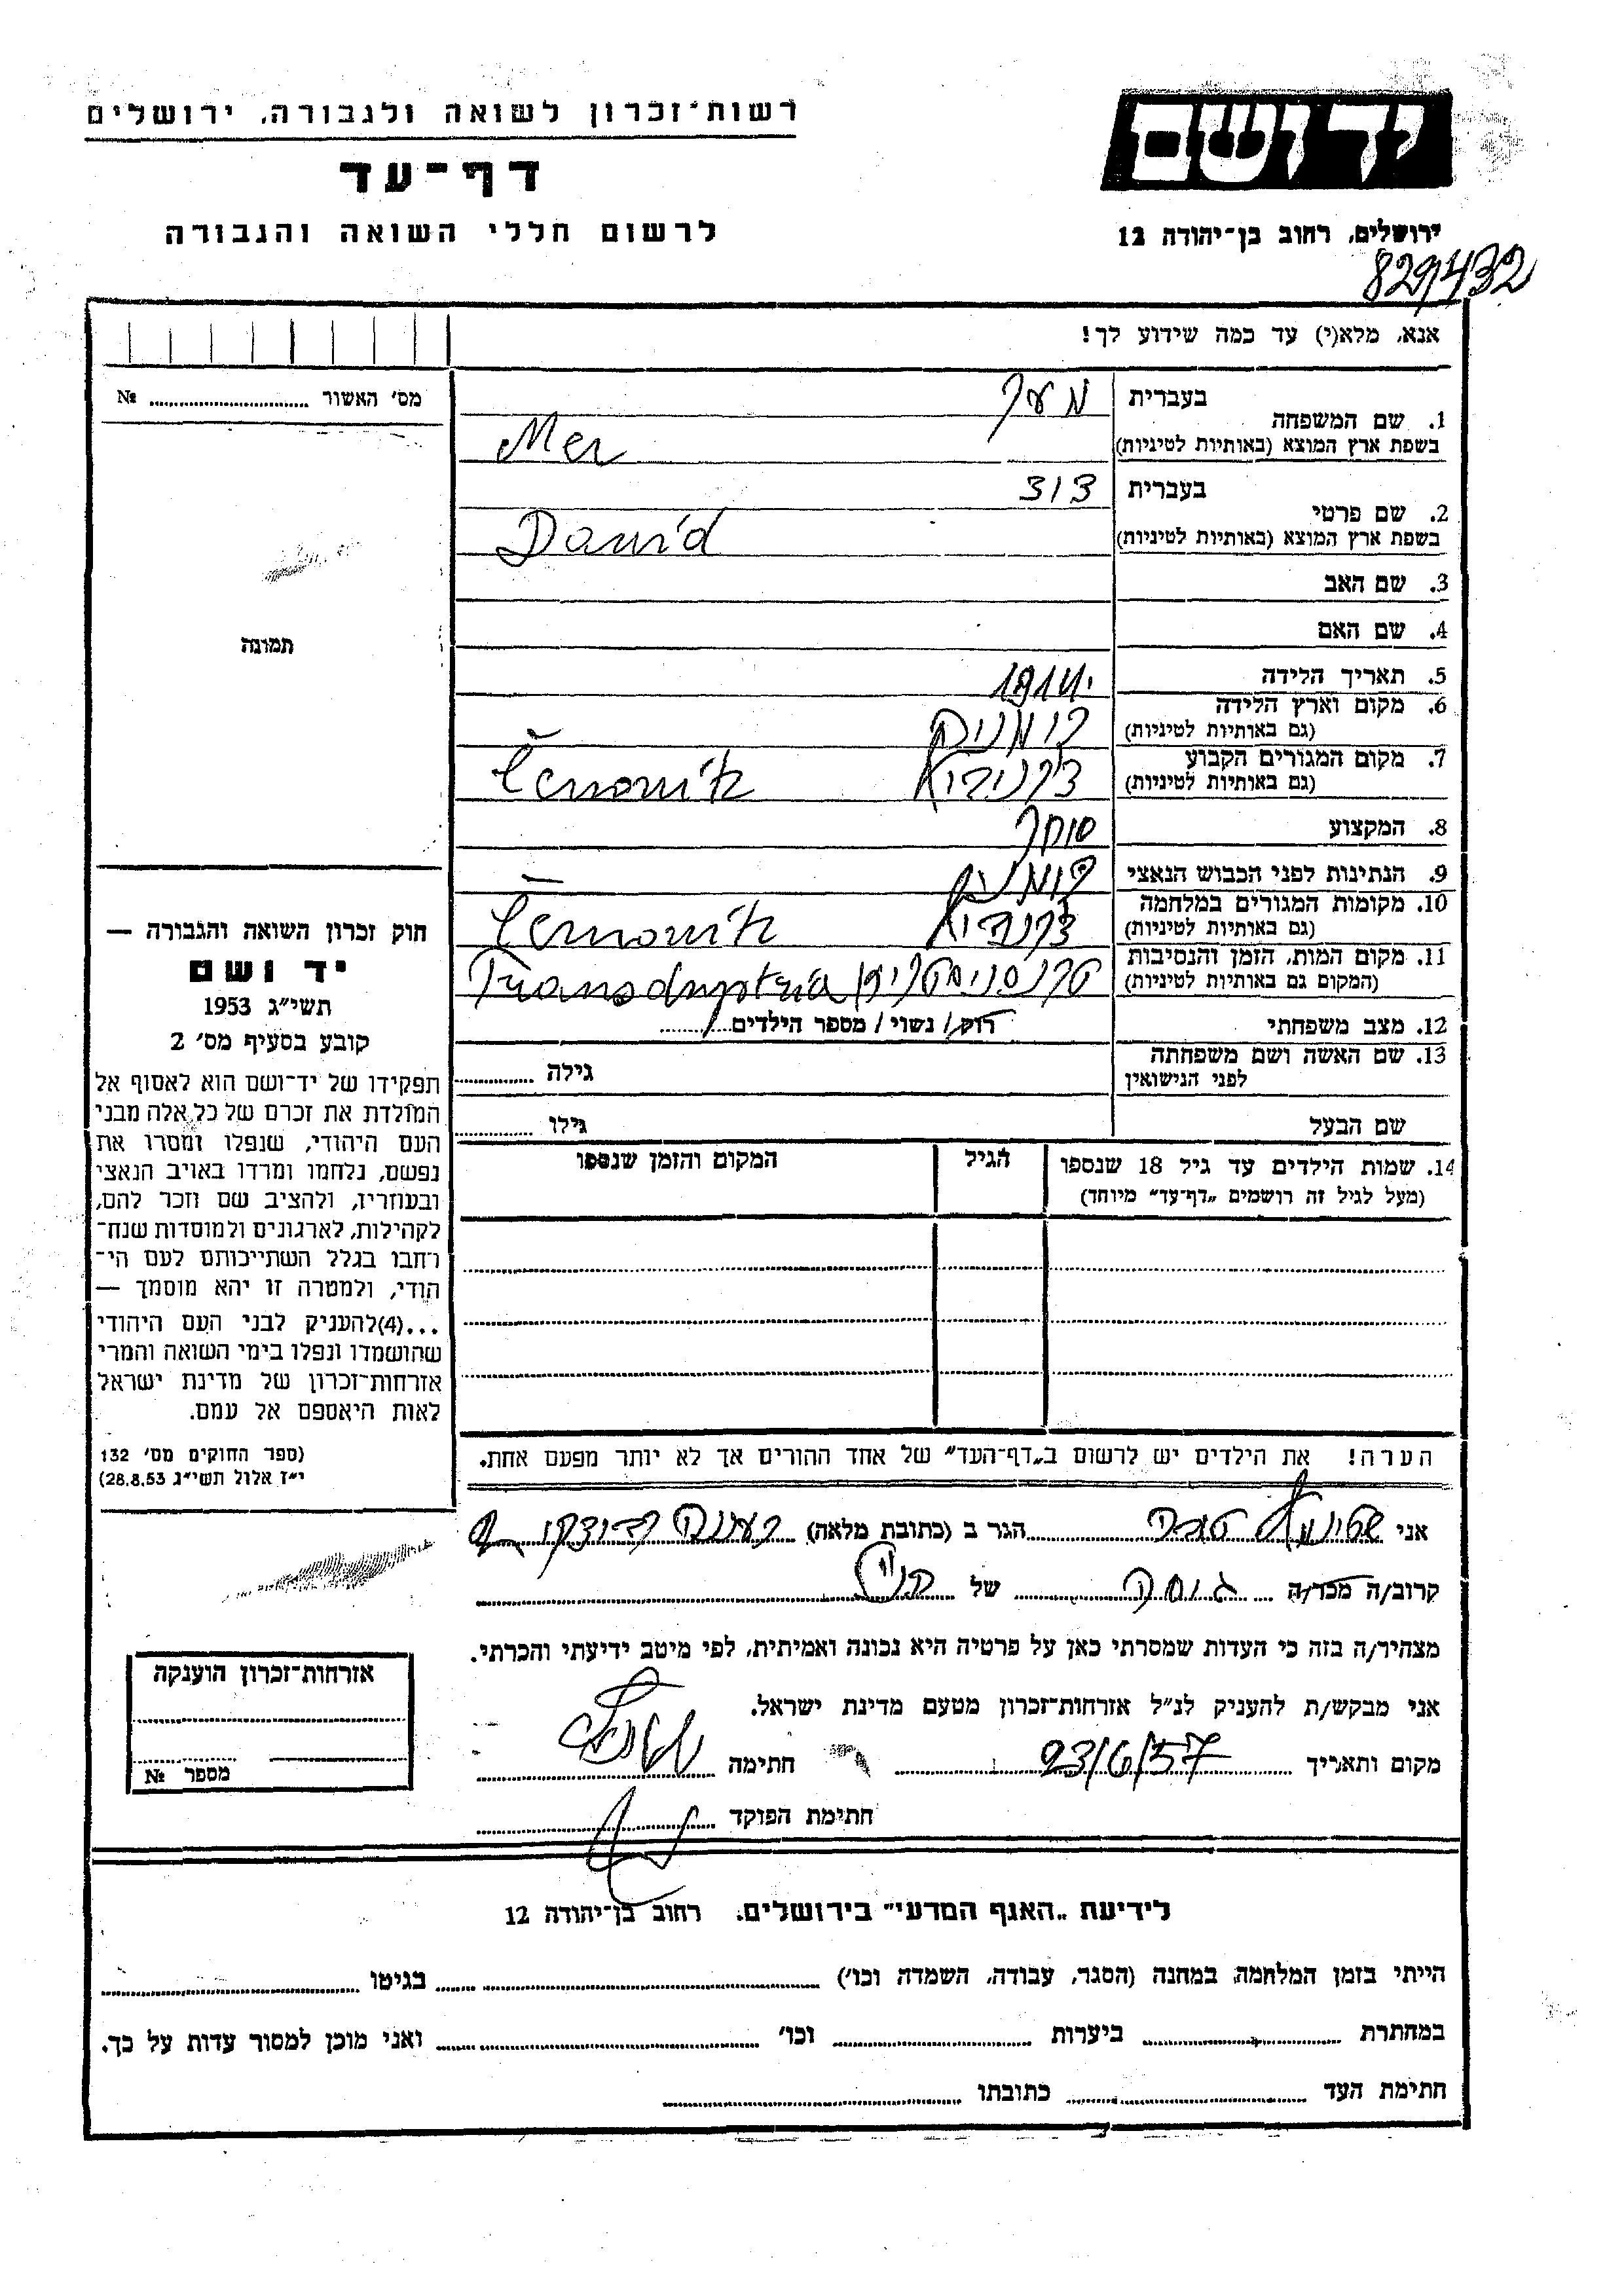 רשות־זכרון לשואה ולגבורה, ירושלים
דף־עד
לרשום חללי השואה והגבורה
יד ושם
ירושלים, רחוב בן־יהודה 12
829432
אנא, מלא(י) עד כמה שידוע לך!
מס׳ האשור № 
תמונה
1. שם המשפחה
בעברית מער
בשפת ארץ המוצא (באותיות לטיניות) Mer
2. שם פרטי
בעברית דוד
בשפת ארץ המוצא (באותיות לטיניות) David
3. שם האב
4. שם האם
5. תאריך הלידה 1914
6. מקום וארץ הלידה רומניה
(גם באותיות לטיניות)
7. מקום המגורים הקבוע
(גם באותיות לטיניות)
8. המקצוע סוחר
9. הנתינות לפני הכבוש הנאצי
10. מקומות המגורים במלחמה
(גם באותיות לטיניות)
11. מקום המות, הזמן והנסיבות
(המקום גם באותיות לטיניות)
12. מצב משפחתי רוק / נשוי / מספר הילדים
13. שם האשה ושם משפחתה
לפני הנישואין
גילה
שם הבעל גילו
14. שמות הילדים עד גיל 18 שנספו הגיל המקום והזמן שנספו
(מעל לגיל זה רושמים „דף־עד״ מיוחד)
הערה! את הילדים יש לרשום ב„דף־העד״ של אחד ההורים אך לא יותר מפעם אחת.
חוק זכרון השואה והגבורה —
יד ושם
תשי״ג 1953
קובע בסעיף מס׳ 2
תפקידו של יד־ושם הוא לאסוף אל
המולדת את זכרם של כל אלה מבני
העם היהודי, שנפלו ומסרו את
נפשם, נלחמו ומרדו באויב הנאצי
ובעוזריו, ולהציב שם וזכר להם,
לקהילות, לארגונים ולמוסדות שנח־
רחבו בגלל השתייכותם לעם הי־
הודי, ולמטרה זו יהא מוסמך —
...(4)להעניק לבני העם היהודי
שהושמדו ונפלו בימי השואה והמרי
אזרחות־זכרון של מדינת ישראל
לאות היאספם אל עמם.
(ספר החוקים מס׳ 132
י״ז אלול תשי״ג 28.8.53)
אני הגר ב (כתובת מלאה)
קרוב/ה מכר/ה של
מצהיר/ה בזה כי העדות שמסרתי כאן על פרטיה היא נכונה ואמיתית, לפי מיטב ידיעתי והכרתי.
אני מבקש/ת להעניק לנ״ל אזרחות־זכרון מטעם מדינת ישראל.
מקום ותאריך 23/6/57 חתימה
חתימת הפוקד
אזרחות־זכרון הוענקה
מספר №
לידיעת „האגף המדעי״ בירושלים, רחוב בן־יהודה 12
הייתי בזמן המלחמה, במחנה (הסגר, עבודה, השמדה וכו׳) בגיטו
במחתרת ביערות וכו׳ ואני מוכן למסור עדות על כך.
חתימת העד כתובתו